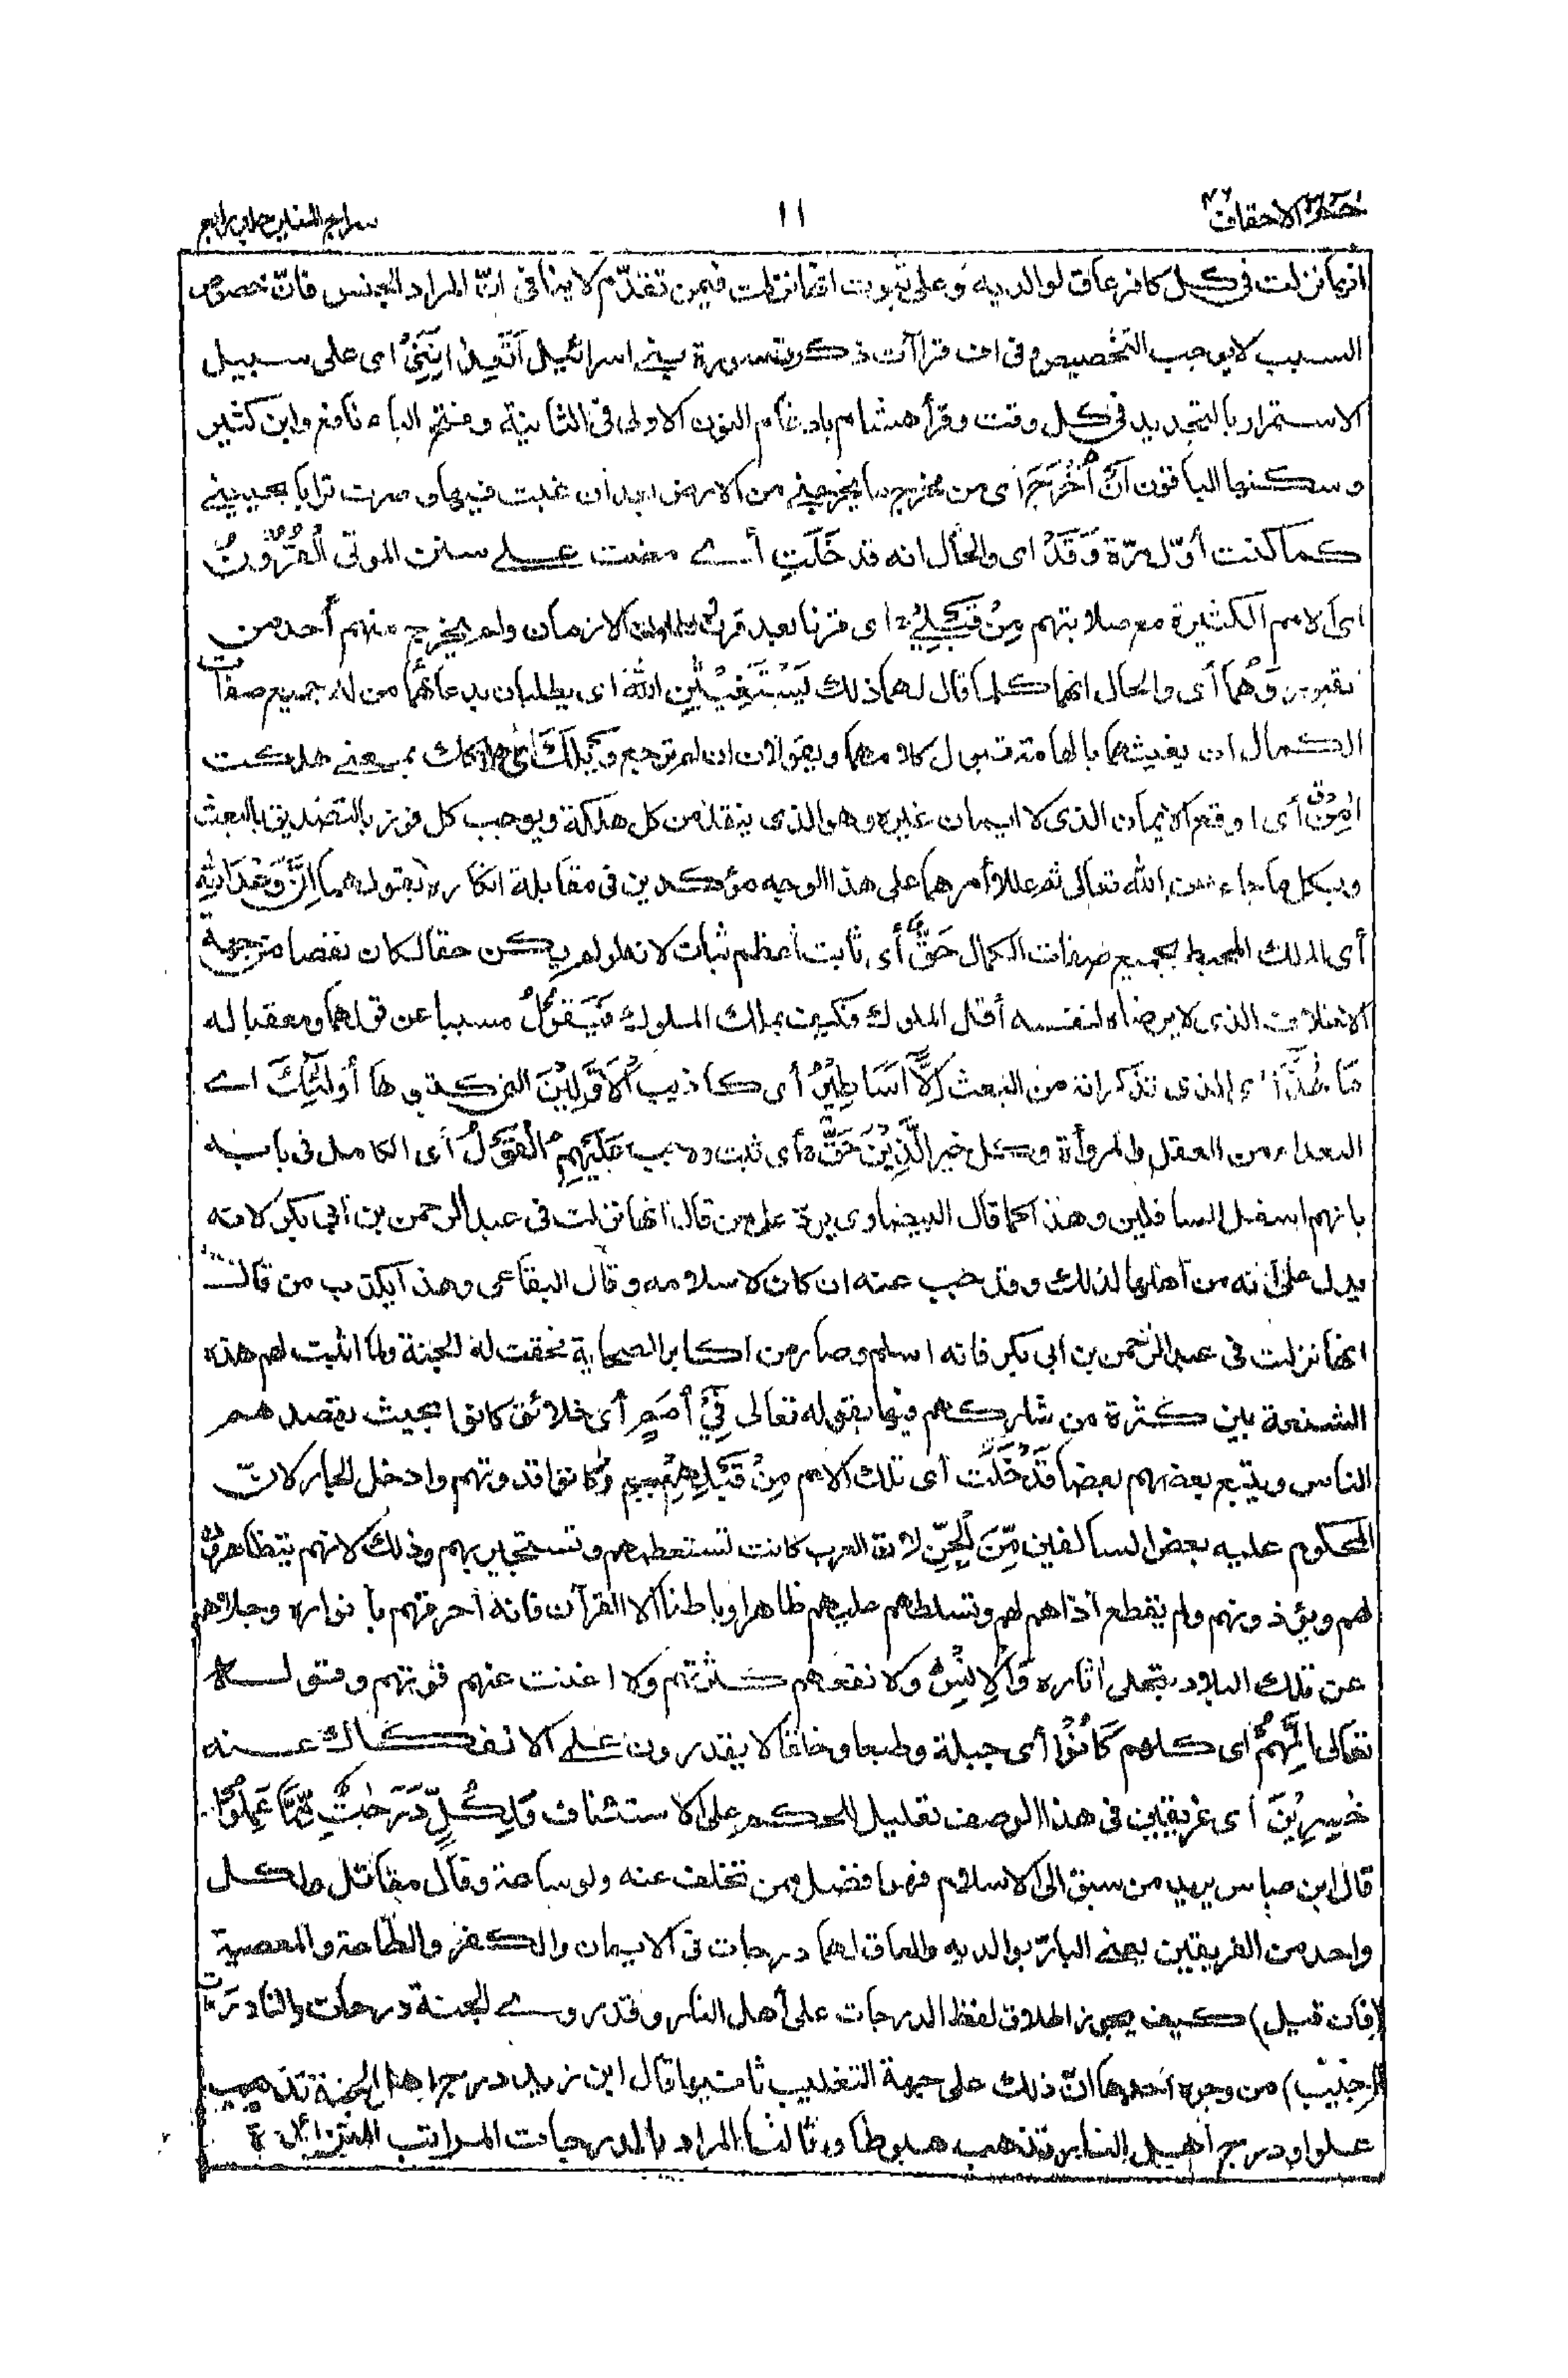 حٰمٓ الاحقاف ٤٦
١١
سراج المنير جلد رابع
انها نزلت في كل كافر عاق لوالديه وعلى ثبوت انها نزلت فيمن تقدّم لا ينافي انّ المراد الجنس فانّ خصوص
السبب لا يوجب التخصيص وفى اف قراآت ذكرت بسورة بنى اسرائيل اَتَعِدٰنِنِىْ اى على سبيل
الاستمرار بالتجديد فى كل وقت وقرأ هشام بادغام النون الاولى فى الثانية وفتح الياء نافع وابن كثير
وسكنها الباقون اَنْ اُخْرَجَ أى من مخرج ما يخرجنى من الارض بعد ان غبت فيها وصرت ترابا يحيينى
كما كنت أوّل مرّة وَقَدْ اى والحال انه قد خَلَتِ أى مضت على سنن الموتى الْقُرُوْنُ
اى الامم الكثيرة مع صلابتهم مِنْ قَبْلِىْ اى قرنا بعد قرن الازمان ولم يخرج منهم أحد من
القبور وَهُمَا أى والحال انهما كلما قال لهما ذلك يَسْتَغِيْثٰنِ اللّٰهَ اى يطلبان بدعائهما من له جميع صفات
الكمال ان يغيثهما بالهامه قبول كلامهما ويقولان ان لم ترجع وَيْلَكَ اى هلاكك بمعنى هلكت
اٰمِنْ أى اوقع الايمان الذى لا ايمان غيره وهو الذى ينقذ من كل هلكة ويوجب كل فوز بالتصديق بالبعث
وبكل ما جاء عن الله تعالى ثم عللا أمرهما على هذا الوجه مؤكدين فى مقابلة انكاره بقولهما اِنَّ وَعْدَ اللّٰهِ
أى الملك المحيط بجميع صفات الكمال حَقٌّ أى ثابت أعظم ثبات لانه لو لم يكن حقا لكان نقصا من جهة
الاخلاف الذى لا يرضاه لنفسه أقل الملوك فكيف بملك الملوك فَيَقُوْلُ مسببا عن قولهما ومعقبا له
مَا هٰذَآ أى الذى تذكرانه من البعث اِلَّآ اَسَاطِيْرُ أى كاذيب الْاَوَّلِيْنَ التى كتبوها أُولٰٓئِكَ اى
البعداء من العقل والمروأة وكل خير الَّذِيْنَ حَقَّ أى ثبت ووجب عَلَيْهِمُ الْقَوْلُ أى الكامل فى بابه
بانهم اسفل السافلين وهذا كما قال البيضاوى يردّ على من قال انها نزلت فى عبد الرحمن بن أبى بكر لانه
يدل على انه من أهلها لذلك وقد جب عنه ان كان لاسلامه وقال البقاعى وهذا يكذب من قال
انها نزلت فى عبد الرحمن بن ابى بكر فانه اسلم وصار من اكابر الصحابة فحقت له الجنة ولما اثبت لهم هذه
الشنعة بين كثرة من شاركهم فيها بقوله تعالى فِىْٓ اُمَمٍ أى خلائق كانوا بحيث يقصدهم
الناس ويتبع بعضهم بعضا قَدْ خَلَتْ أى تلك الامم مِنْ قَبْلِهِمْ وكانوا قدوتهم وادخل الجار لانّ
المحكوم عليه بعض السالفين مِّنَ الْجِنِّ لانّ العرب كانت تستعظمهم وتستجير بهم وذلك لانهم يتظاهرون
لهم ويؤذونهم ولم يقطع أذاهم لهم وتسلطهم عليهم ظاهرا وباطنا الا القرآن فانه أحرقهم بأنواره وجلاهم
عن تلك البلاد بتجلى آثاره وَالْاِنْسِ ولا نفعهم كثرتهم ولا اغنت عنهم قوّتهم وقوله
تعالى اِنَّهُمْ اى كلهم كَانُوْا أى جبلة وطبعا وخلقا لا يقدرون على الانفكاك عنه
خٰسِرِيْنَ أى عريقين فى هذا الوصف تعليل للحكم على الاستئناف وَلِكُلٍّ دَرَجٰتٌ مِّمَّا عَمِلُوْا
قال ابن عباس يريد من سبق الى الاسلام فهو افضل ممن تخلف عنه ولو ساعة وقال مقاتل ولكل
واحد من الفريقين يعنى البارّ بوالديه والعاق لهما درجات فى الايمان والكفر والطاعة والمعصية
(فان قيل) كيف يجوز اطلاق لفظ الدرجات على أهل النار وقد روى الجنة درجات والنار دركات
(اجيب) من وجوه احدها انّ ذلك على جهة التغليب ثانيها قال ابن زيد درج اهل الجنة تذهب
علوا ودرج أهل النار تذهب هبوطا وثالثها المراد بالدرجات المراتب المتزايدة